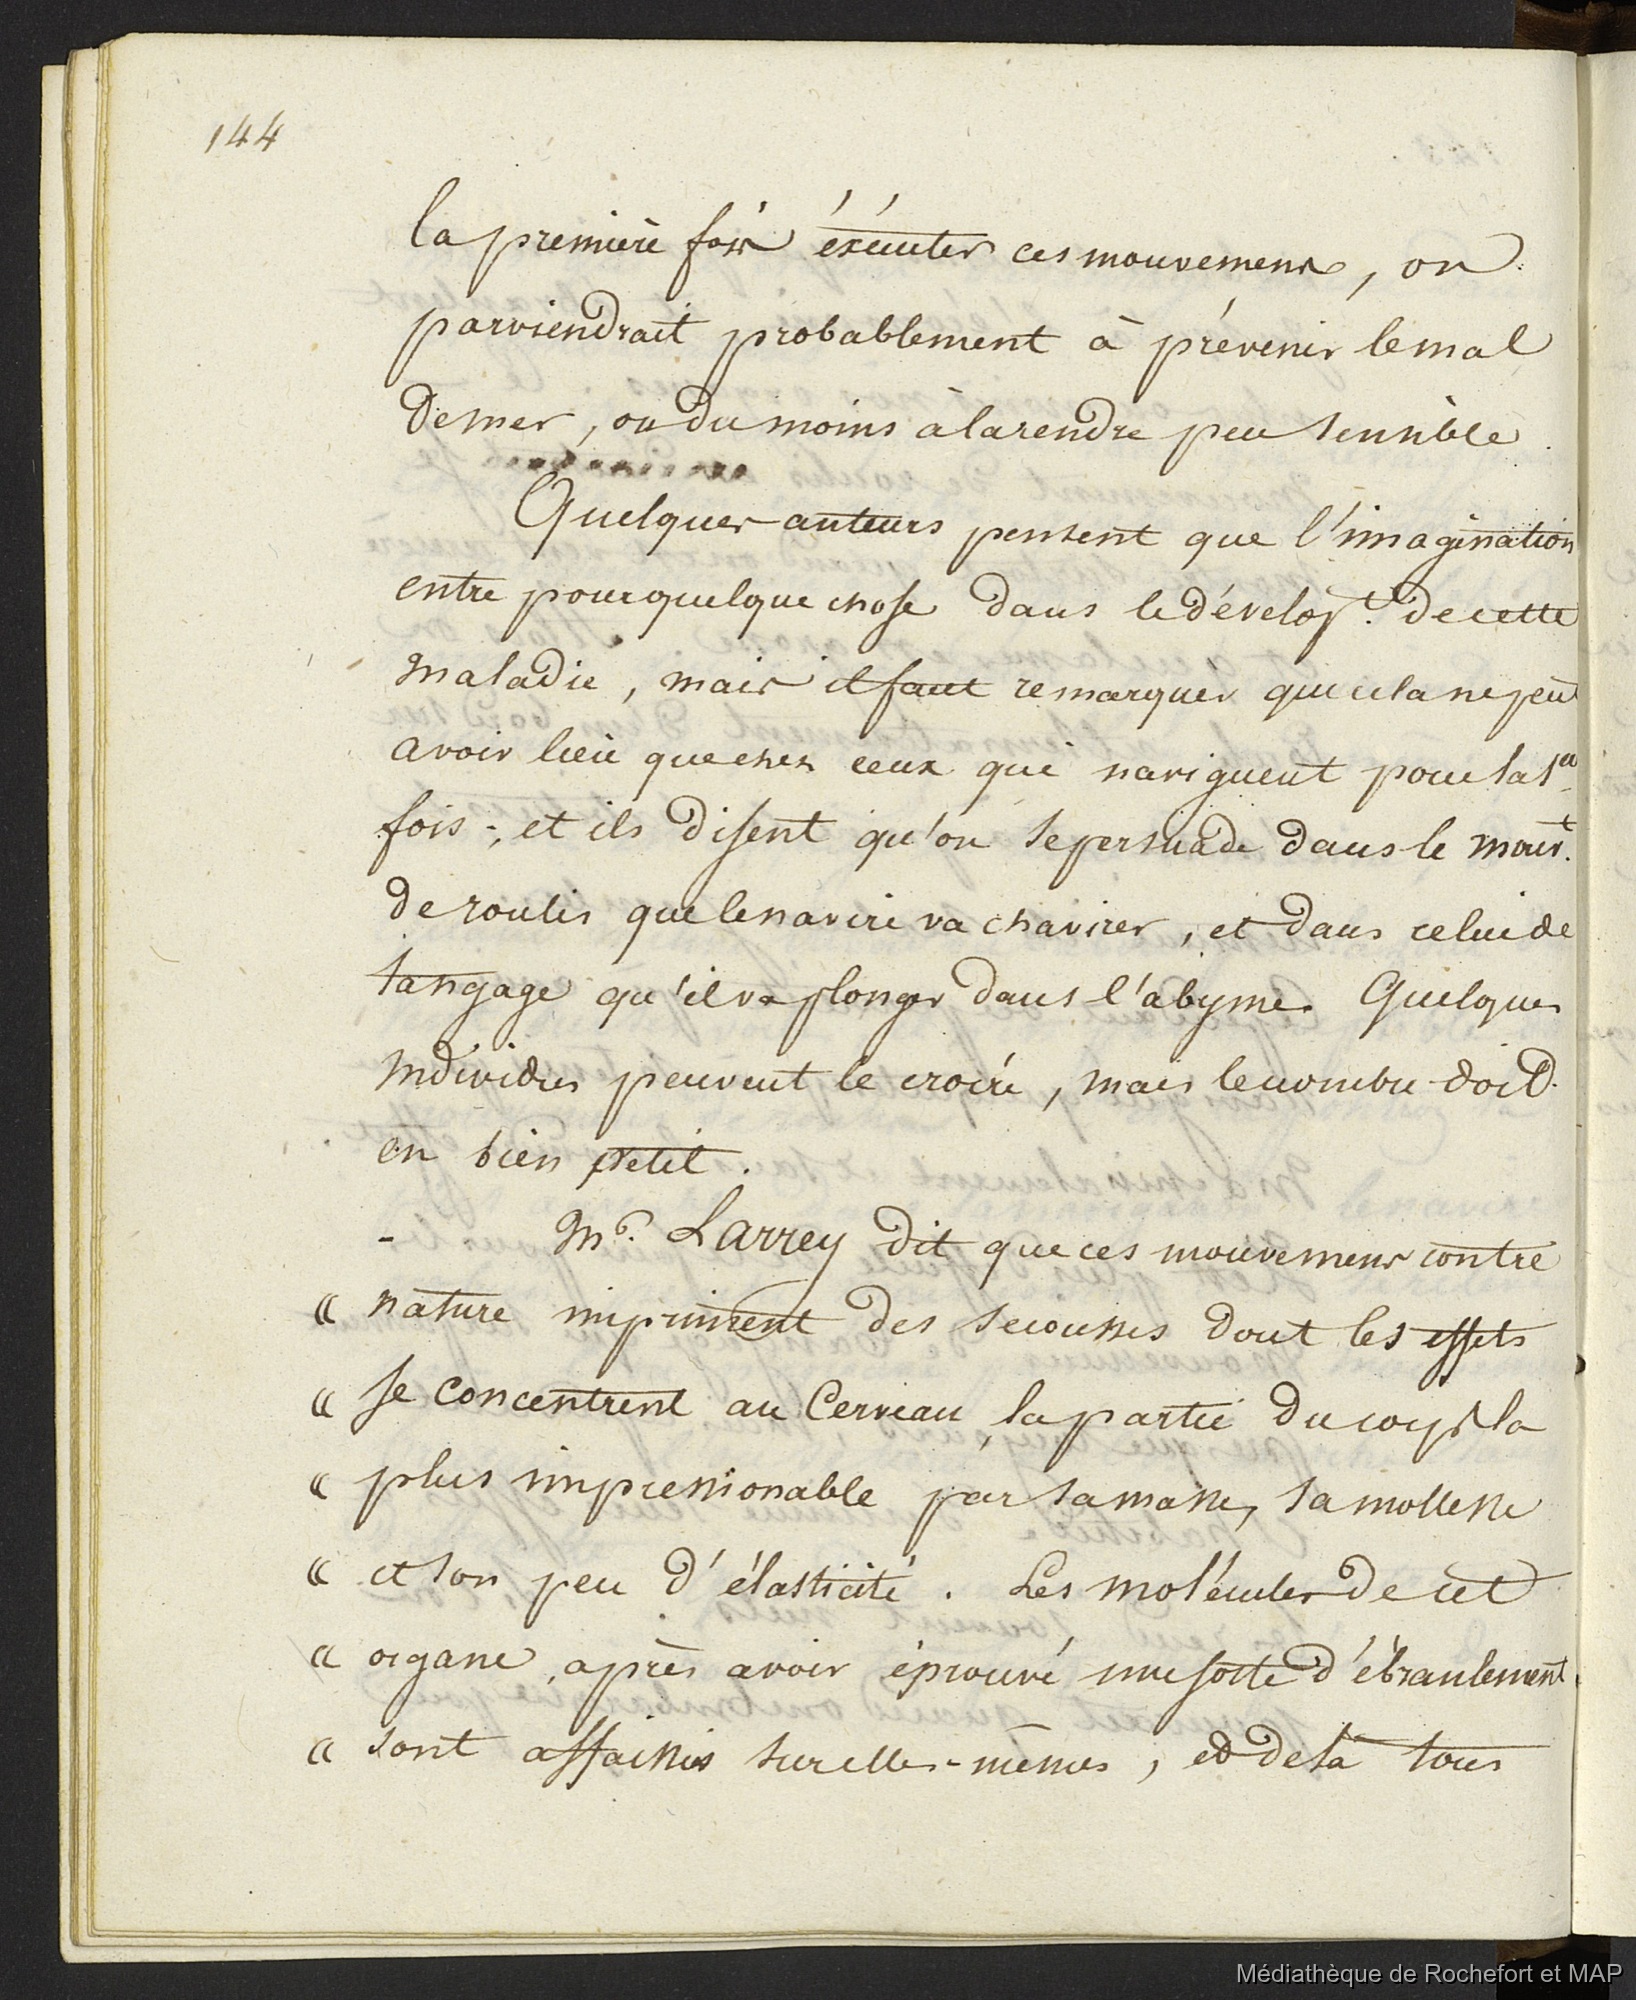 144
la première fois éxécuter ces mouvemens, on
parviendrait probablement à prévenir le mal
de mer, ou du moins à la rendre peu sensible.
Quelques auteurs pensent que l'imagination
entre pour quelque chose dans le dévelopt. de cette
maladie, mais il faut remarquer que cela ne peut
avoir lieu que chez ceux qui naviguent pour la 1re
fois; et ils disent qu'on se persuade dans le mouvt.
de roulis que le navire va chavirer, et dans celui de
tangage qu'il va plonger dans l'abyme. Quelques
individus peuvent le croire, mais le nombre doit
en bien petit.
- Mr. Larrey dit que ces mouvemens contre
« nature impriment des secousses dont les effets
« se concentrent au Cerveau, la partie du corps la
« plus impressionable par sa masse, sa mollesse
« et son peu d'élasticité. Les molécules de cet
« organe, après avoir éprouvé une sorte d'ébranlement
« sont affaissées sur elles-mêmes, et de là tous
Médiathèque de Rochefort et MAP